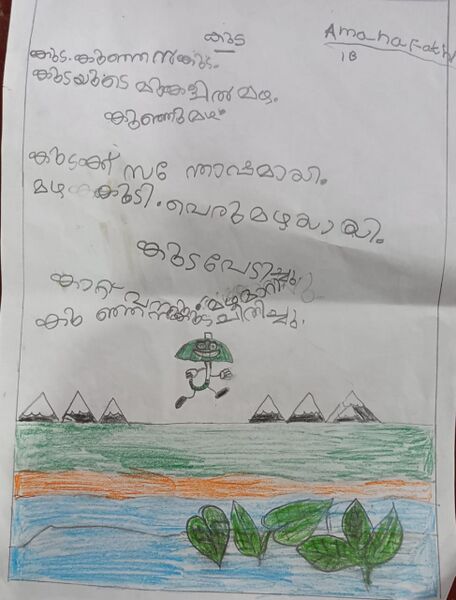 കുട
Amana Fath
1B
കുട. കുഞ്ഞന്‍കുട.
കുടയുടെ മുകളില്‍ മഴ.
കുഞ്ഞുമഴ
കുടക്ക് സന്തോഷമായി.
മഴ കൂടി. പെരുമഴയായി.
കുട പേടിച്ചു
കാറ്റ് വന്നു. മഴമാറി
കുഞ്ഞന്‍കുട ചിരിച്ചു.